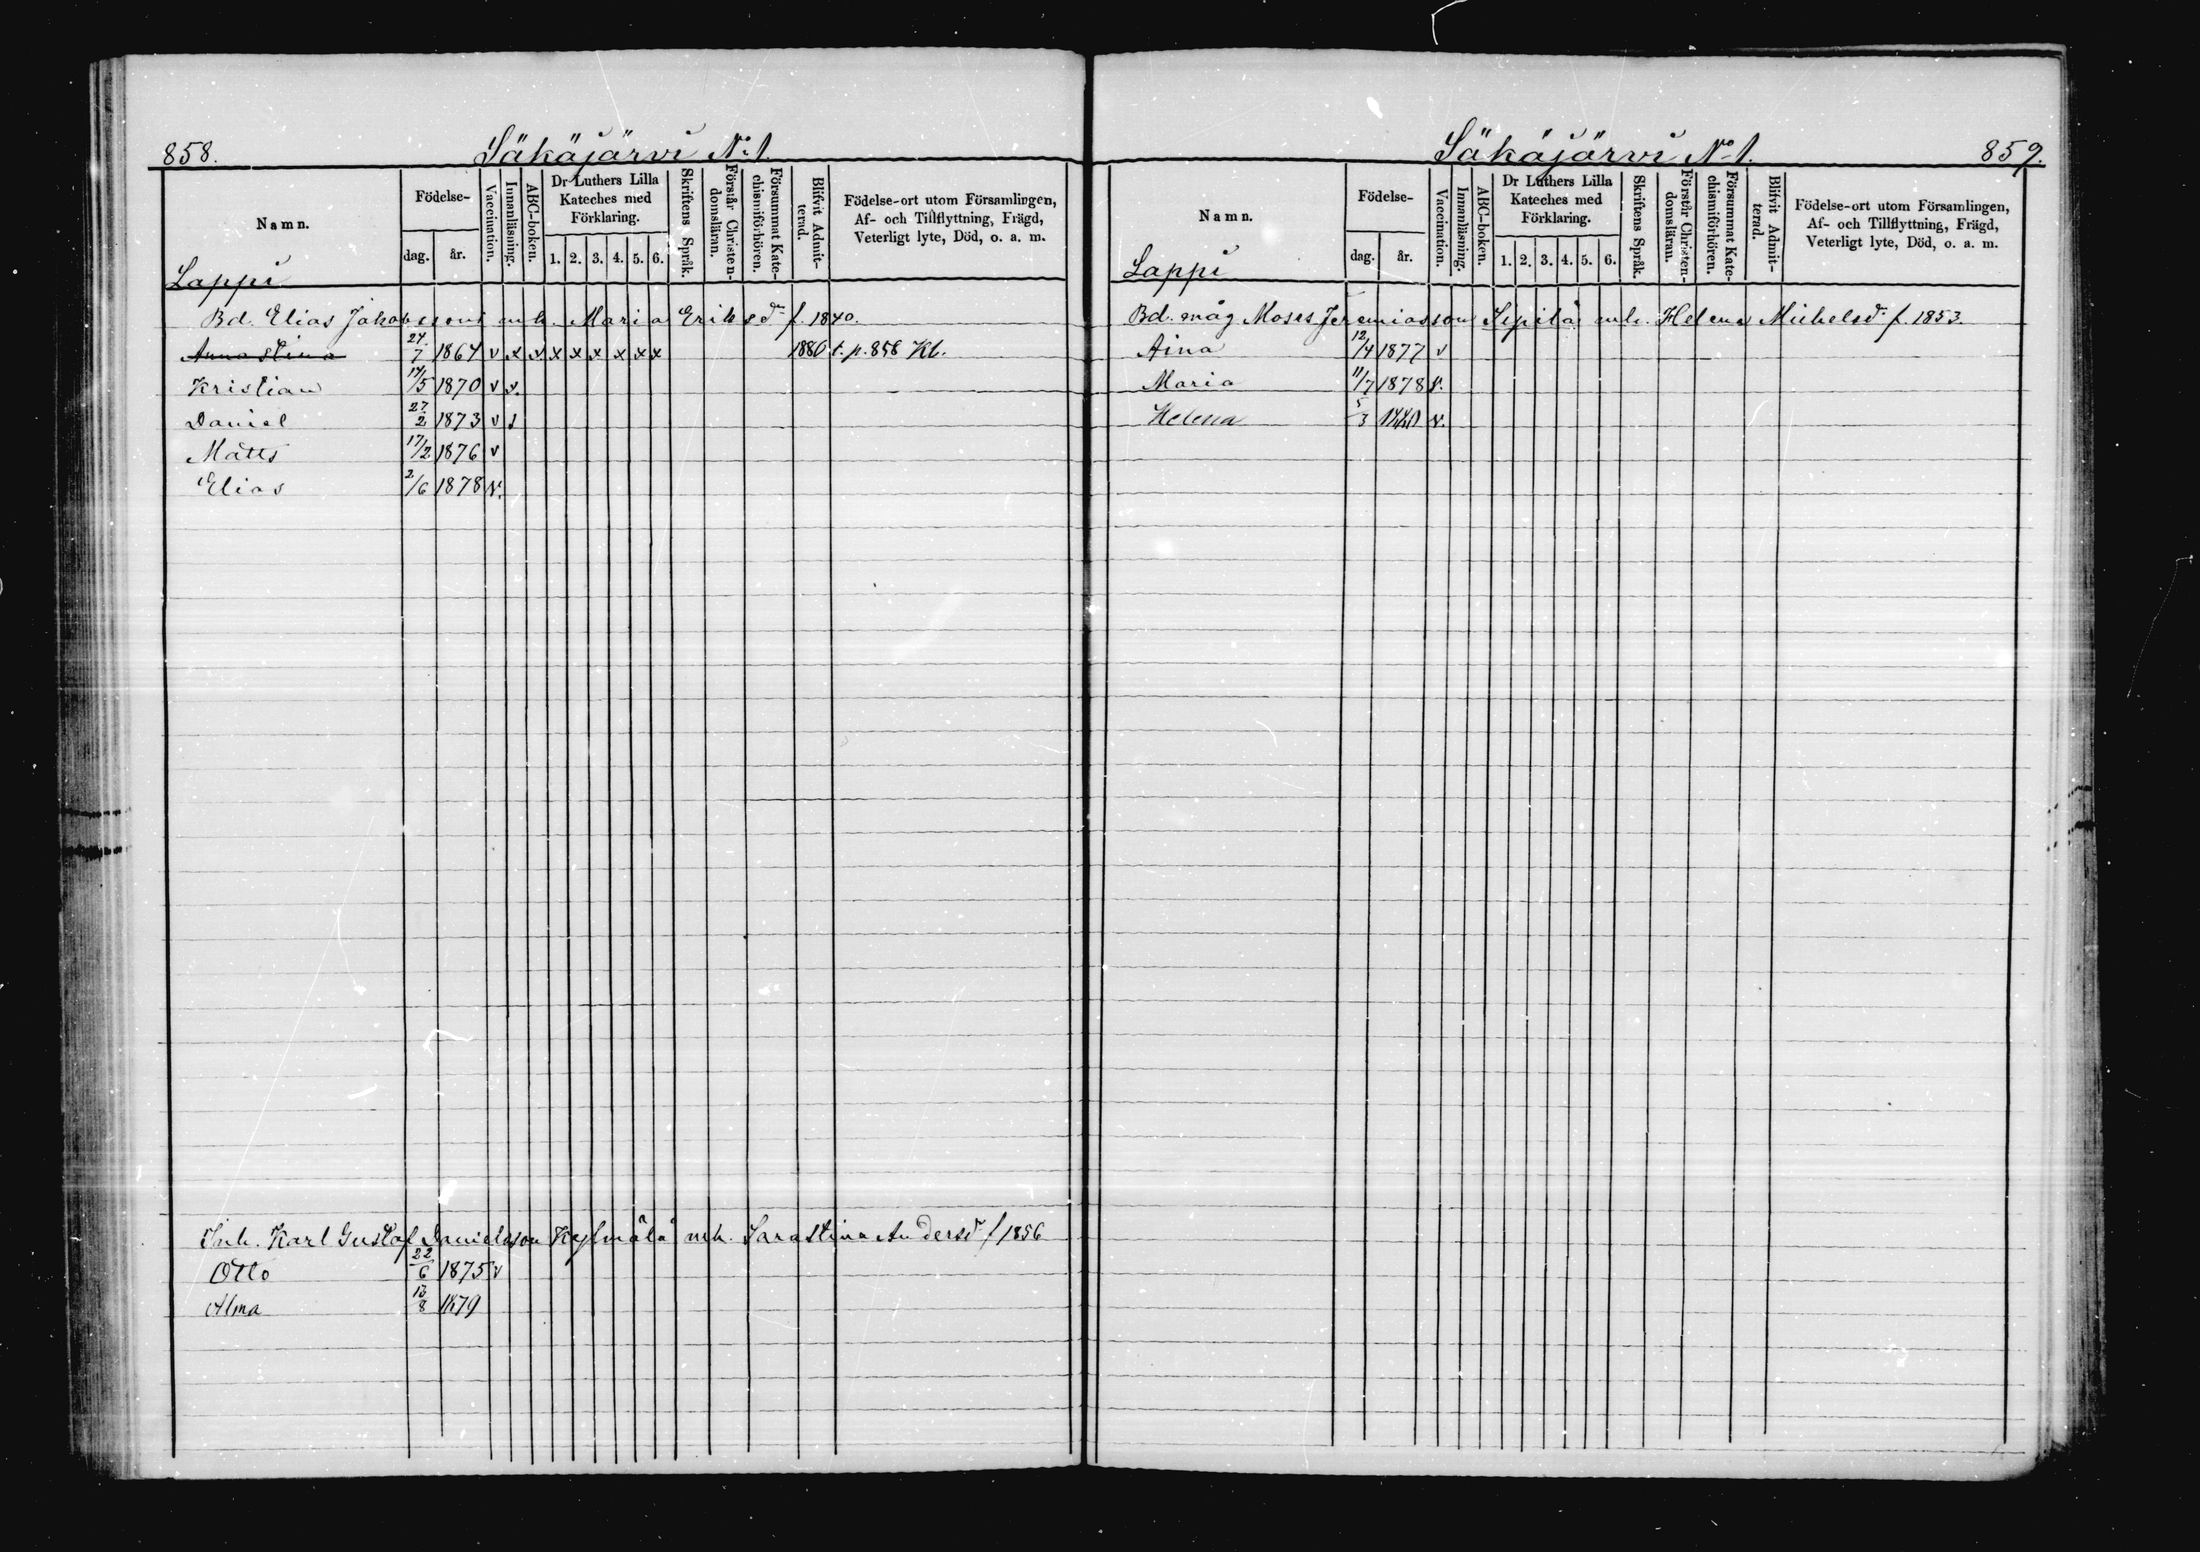 858. Säkäjärvi No 1.
Namn. Födelse- dag. år. Vaccination. Innanläsning. ABC-boken. Dr Luthers Lilla Kateches med Förklaring. 1. 2. 3. 4. 5. 6. Skriftens Språk. Förstår Christendomsläran. Försummat Katechismiförhören. Blifvit Admitterad. Födelse-ort utom Församlingen, Af- och Tillflyttning, Frägd, Veterligt lyte, Död, o. a. m.
Lappi
Bd. Elias Jakobssons enk. Maria Eriksdr f. 1840.
Anna Stina 24/7 1864 v x x x x x x x x 1880 t. p. 858 Kb.
Kristian 14/5 1870 v v.
Daniel 27/2 1873 v
Matts 17/2 1876 v
Elias 2/6 1878 v.
Inh. Karl Gustaf Danielsson Kylmälä mh. Sara Stina Andersdr f 1856
Otto 22/6 1875 v
Alma 13/8 1879
Säkäjärvi No 1. 859.
Namn. Födelse- dag. år. Vaccination. Innanläsning. ABC-boken. Dr Luthers Lilla Kateches med Förklaring. 1. 2. 3. 4. 5. 6. Skriftens Språk. Förstår Christendomsläran. Försummat Katechismiförhören. Blifvit Admitterad. Födelse-ort utom Församlingen, Af- och Tillflyttning, Frägd, Veterligt lyte, Död, o. a. m.
Lappi
Bd. måg Moses Jeremiasson Sepilä mh. Helena Michelsdr f. 1853.
Aina 12/4 1877 v
Maria 11/7 1878 v.
Helena 5/3 1880 v.